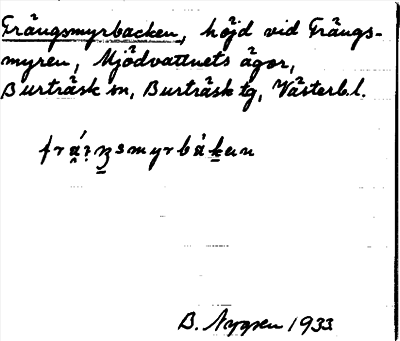 Frångsmyrbacken, höjd vid Frångs-
myren, Mjödvattnets ägor,
Burträsk sn, Burträsk tg, Västerb.l.
B. Nygren 1933